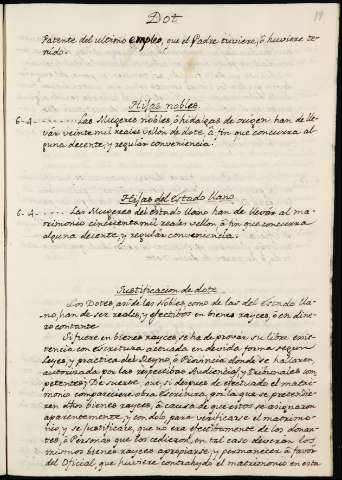 Dot.
19
Patente del ultimo empleo, que el Padre tuviere, ó huviere te-
nido.
Hijas nobles.
6-4 - - - - - - - Las Mugeres nobles, ó hidalgas de origen han de lle-
vár veinte mil reales vellón de dote, á fin que concurra al-
guna decente, y regulár conveniencia.
Hijas del Estado llano
6-4 - - - - Las Mugeres del Estado llano han de llevár al ma-
trimonio cincuenta mil reales vellón, á fin que concurra
alguna decente, y regulár conveniencia.
Justificacion de dote
Los Dotes, así de las Nobles, como de las del Estado lla-
no, han de ser reales, y efectibos en bienes rayces, ó en dine-
ro contante
Si fuere en bienes rayces, se há de provár su libre exis-
tencia con Escritura actuada en devida forma segun
Leyes, y practica del Reyno, ó Provincia donde se hallaren,
autorizada por las respectibas Audiencias, y Tribunales com-
petentes; De suerte, que si despues de efectuado el matri-
monio compareciere otra Escritura, por la que se pretendie-
ren dhos bienes rayces, á causa de que estos se asignaron
aparentemente, y en solo para verificar el matrimo-
nio, y se justificare, que no era efectibamente de los donan-
tes, ó Personas que los cedieron, en tal caso deverán los
mismos bienes rayces apropiarse, y permanecer á favor
del Oficial, que huviere contrahydo el matrimonio en esta